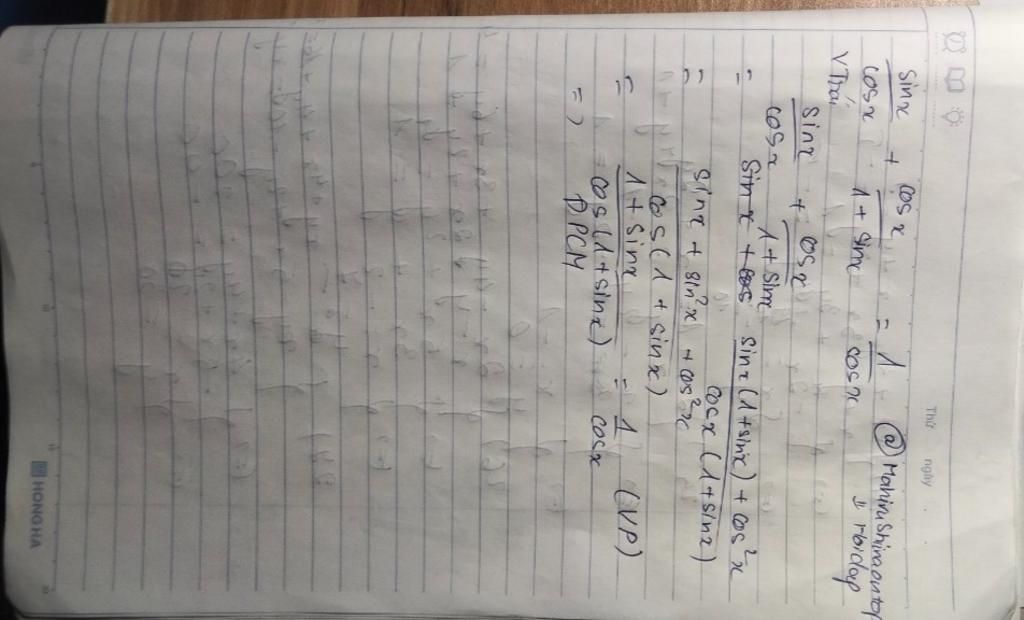 Thứ ngày
sinx/cosx + cosx/(1 + sinx) = 1/cosx @MahiruShinaontop
VTrái ↓ rbiclap
sinx/cosx + cosx/(1 + sinx)
= (sinx(1+sinx) + cos²x)/(cosx(1+sinx))
= (sinx + sin²x + cos²x)/(cos(1 + sinx))
= (1 + sinx)/(cos(1+sinx)) = 1/cosx (VP)
=) ĐPCM
HONG HA